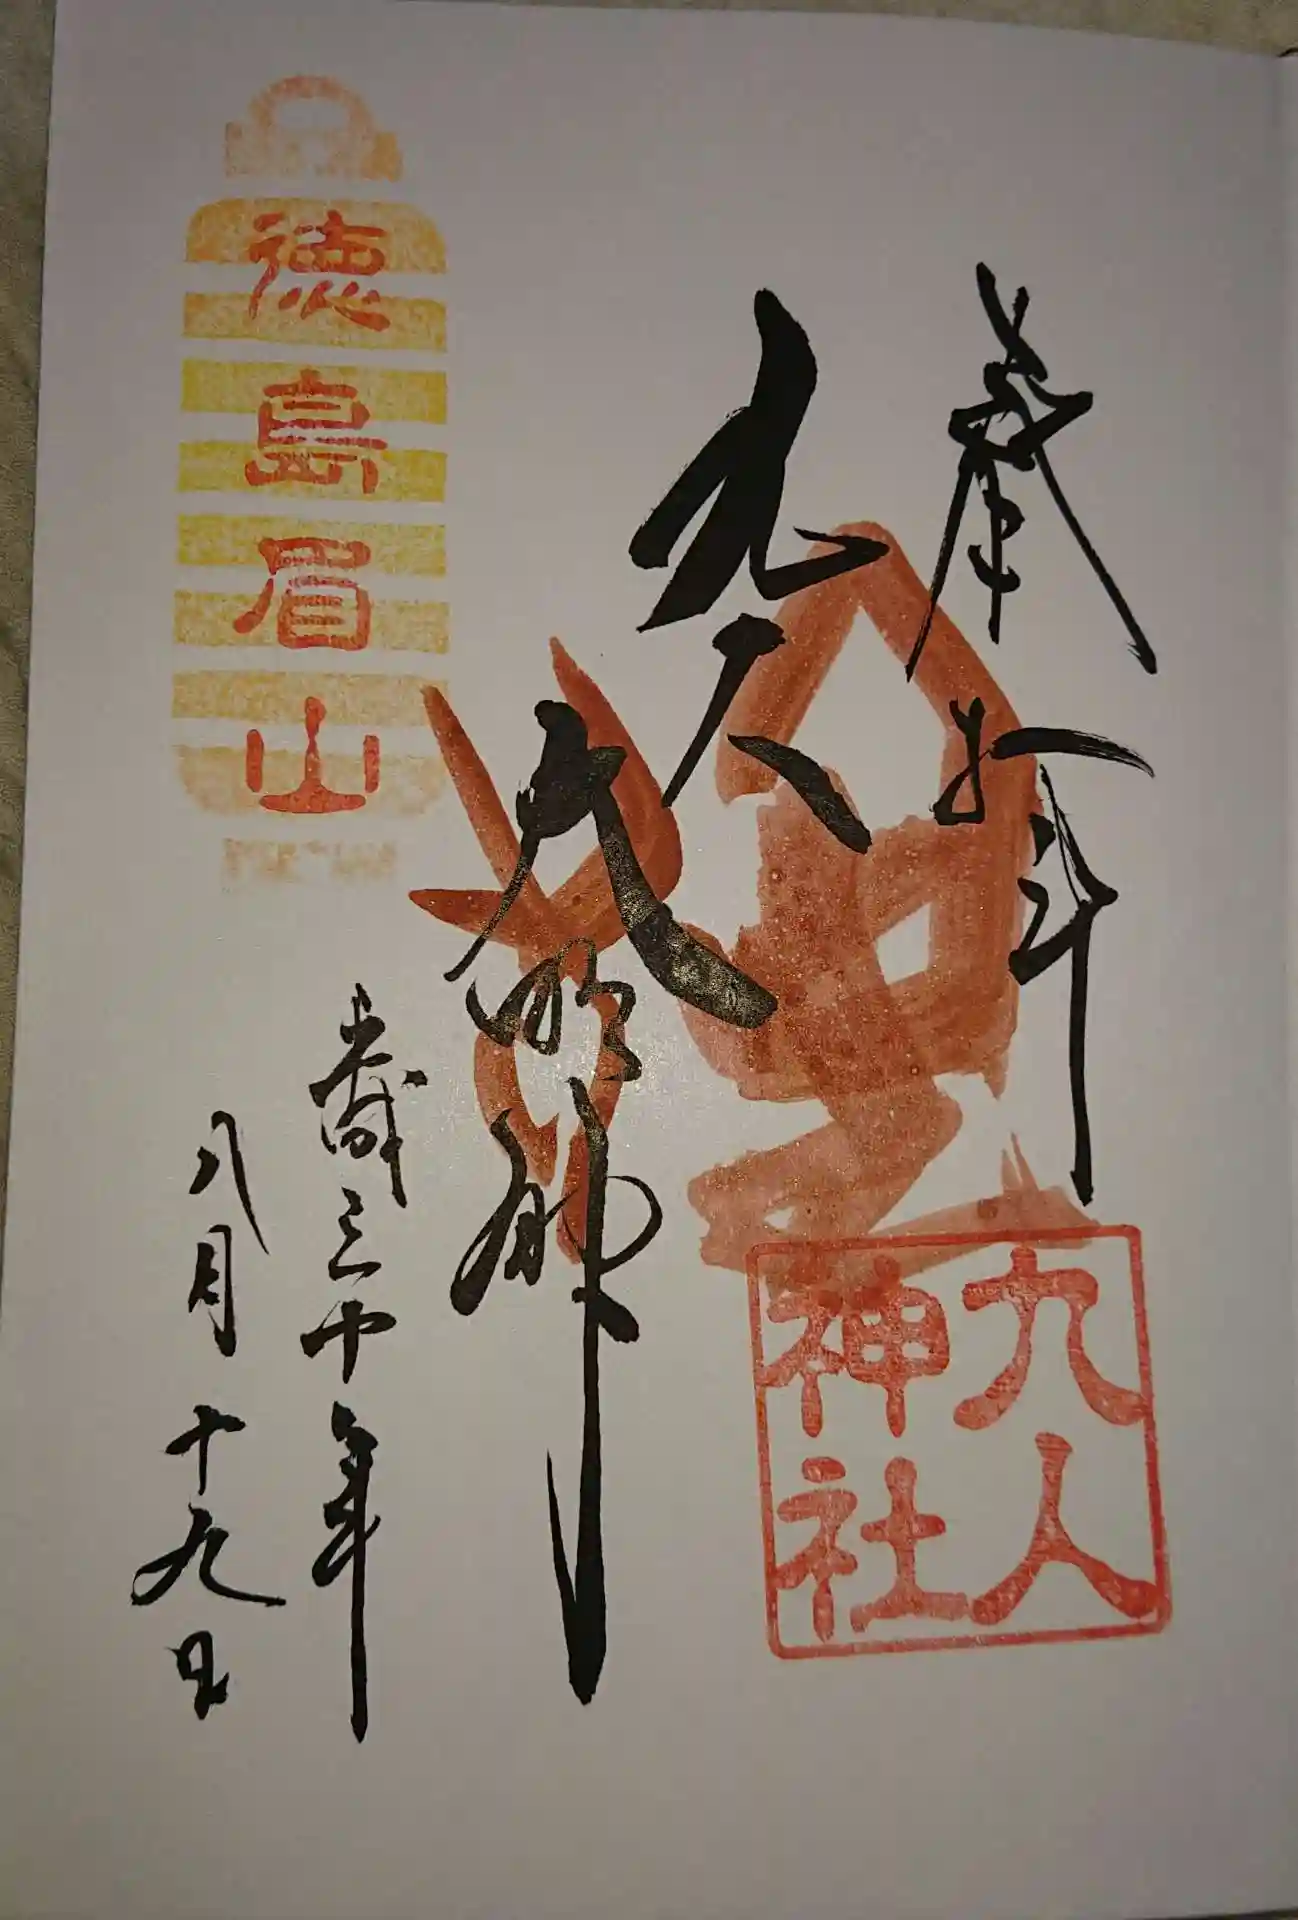 奉拝
九人
大明神
九人
神社
歳三十年
八月十九日
徳島眉山